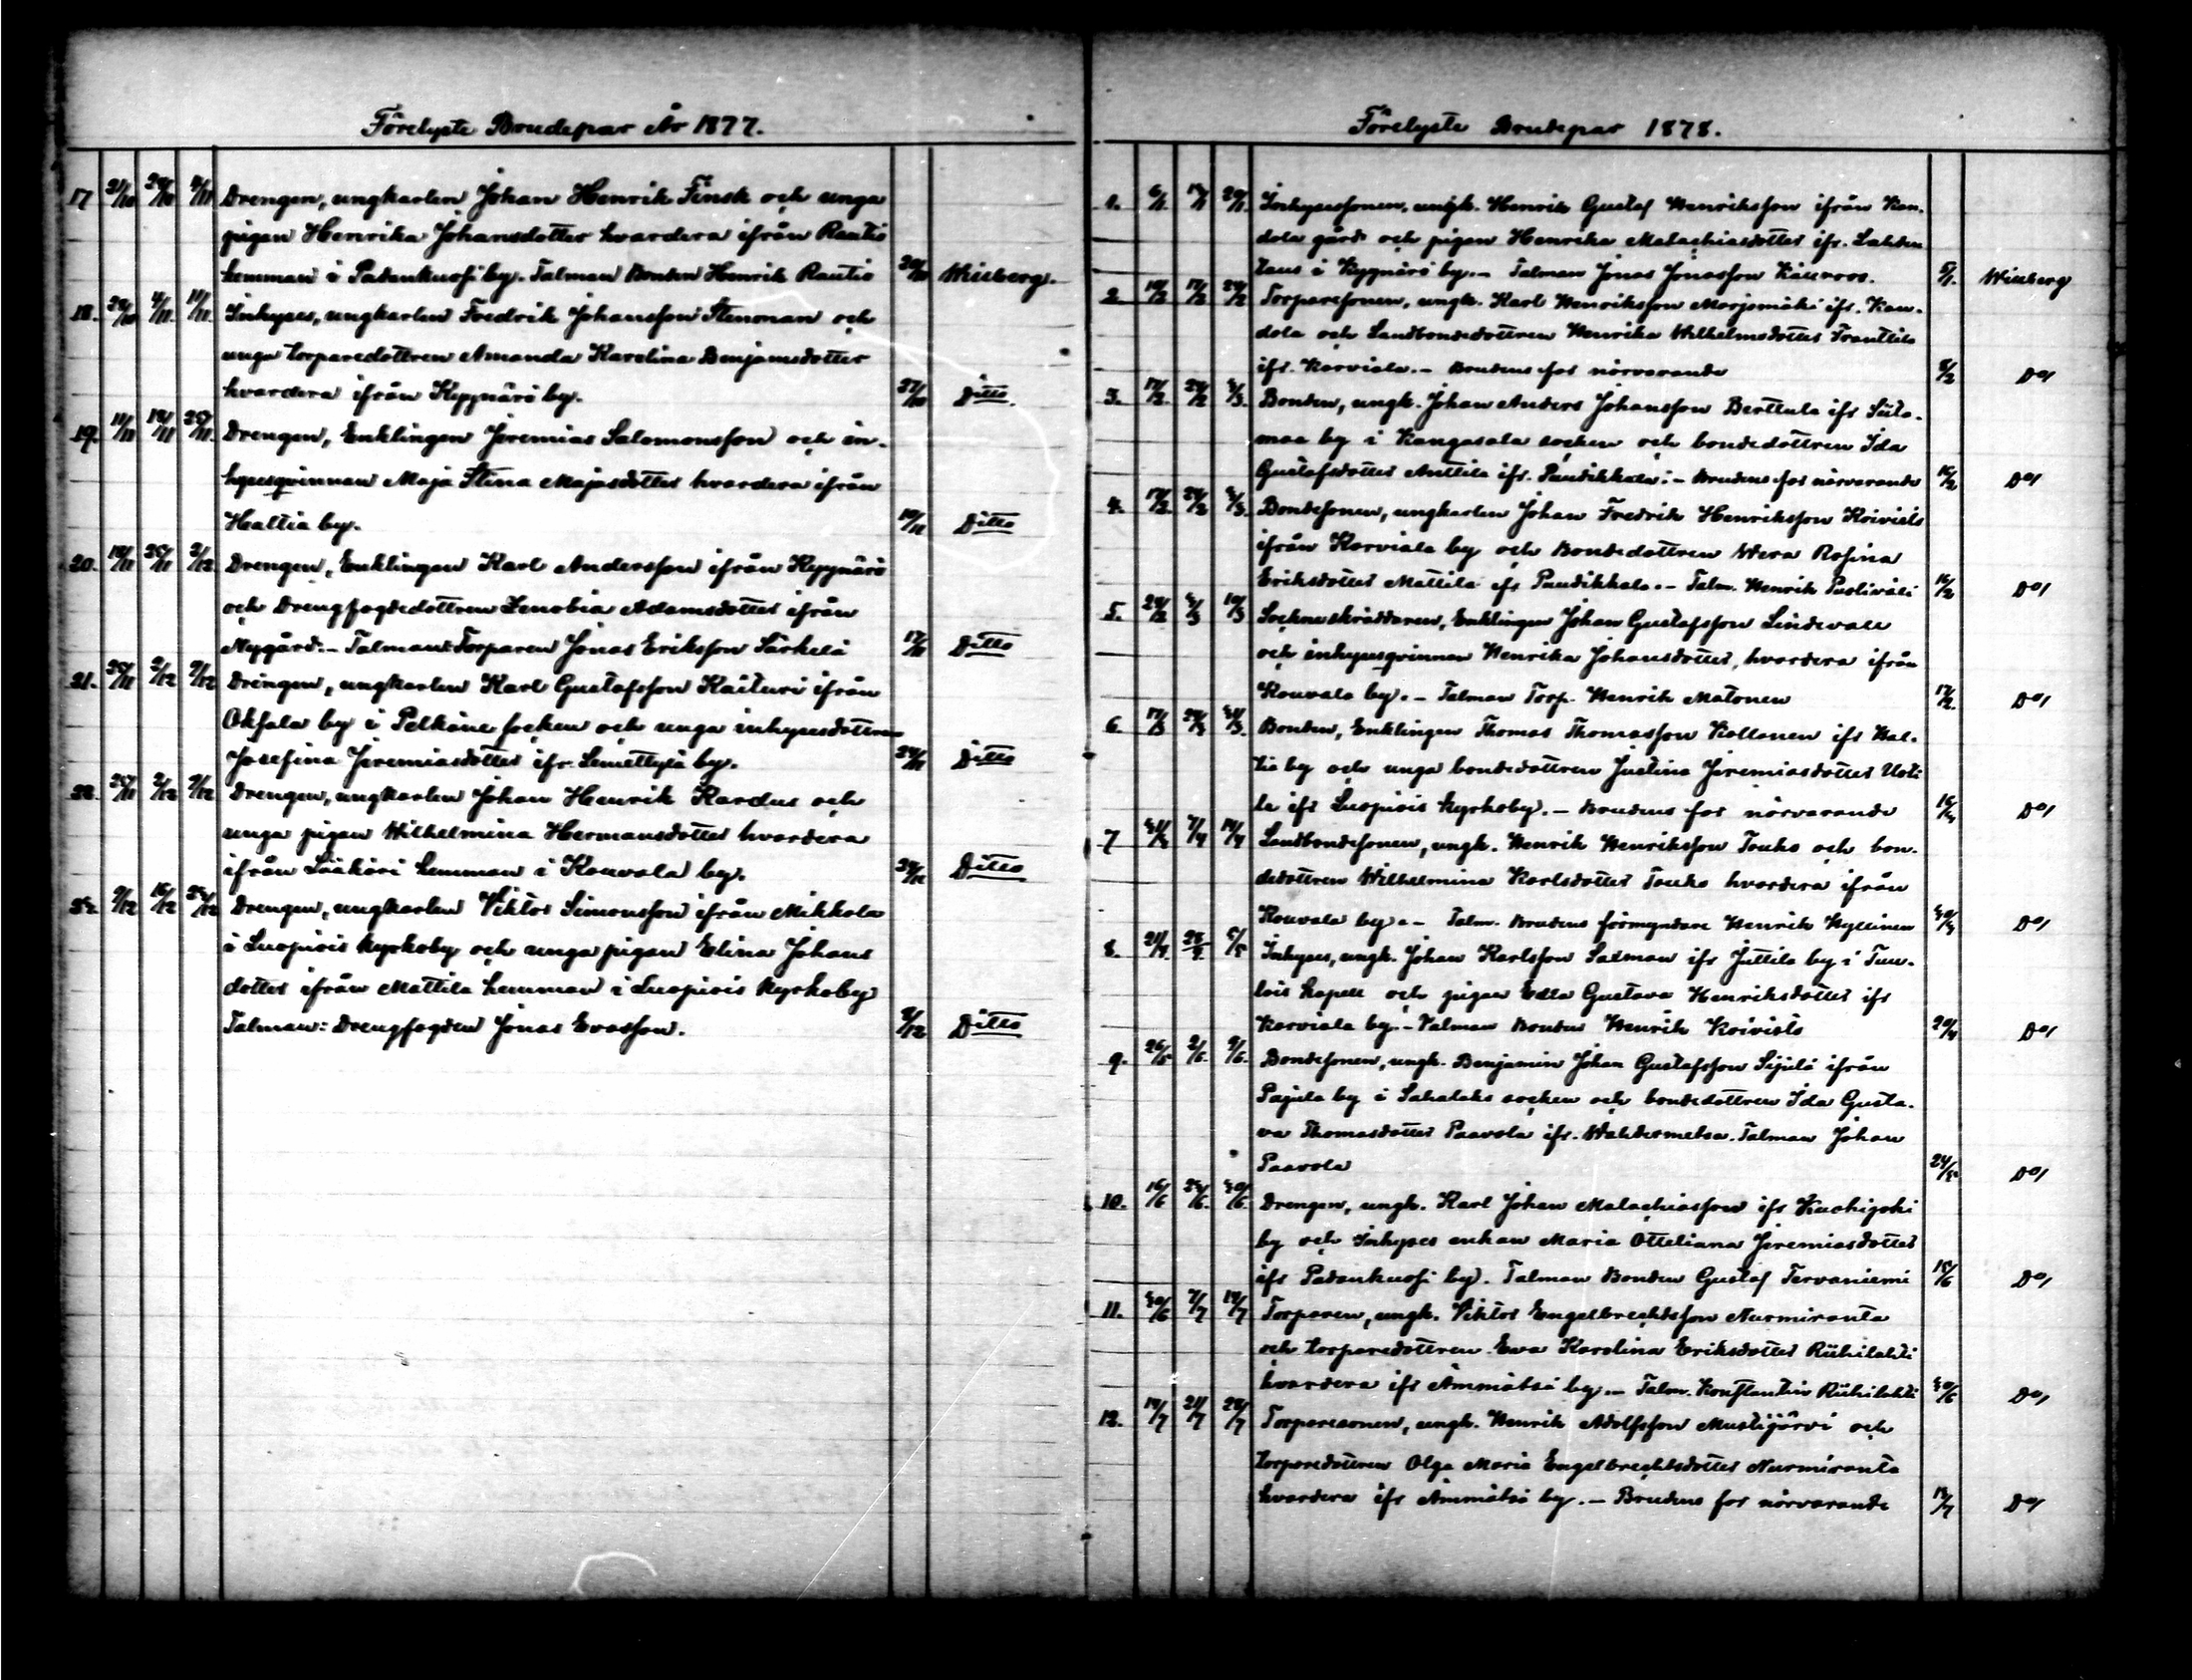 Förelyste Brudepar År 1877.
17 21/10 28/10 4/11 Drengen, ungkarlen Johan Henrik Finsk och unga
pigan Henrika Johansdotter hvardera ifrån Rautio
hemman i Padankuosi by. Talman Bonden Henrik Rautio 20/10 Winberg.
18. 28/10 4/11 11/11 Inhyses, ungkarlen Fredrik Johansson Stenman och
unga torparedottren Amanda Karolina Benjamsdotter
hvardera ifrån Kyynärö by. 27/10 Ditto
19. 11/11 18/11 25/11 Drengen, Enklingen Jeremias Salomonsson och in-
hysesqvinnan Maja Stina Majasdotter hvardera ifrån
Haltia by. 10/11 Ditto
20. 18/11 25/11 2/12 Drengen, Enklingen Karl Andersson ifrån Kyynärö
och Drengfogdedottren Zenobia Adamsdotter ifrån
Nygård. – Talman: Torparen Jonas Eriksson Särkelä 17/11 Ditto
21. 25/11 2/12 9/12 Drengen, ungkarlen Karl Gustafsson Kaituri ifrån
Okfala by i Pelkäne socken och unga inhysesdottren
Josefina Jeremiasdotter ifr. Simettylä by. 24/11 Ditto
22. 25/11 2/12 9/12 Drengen, ungkarlen Johan Henrik Kardus och
unga pigan Wilhelmina Hermansdotter hvardera
ifrån Lääkäri hemman i Kouvala by. 24/11 Ditto
23. 9/12 16/12 23/12 Drengen, ungkarlen Viktor Simonsson ifrån Mikkola
i Luopiois kyrkoby och unga pigan Elina Johans
dotter ifrån Mattila hemman i Luopiois kyrkoby
Talman: Drengfogden Jonas Evasson. 8/12 Ditto
Förelyste Brudepar 1878.
1. 6/1 13/1 20/1 Inhysessonen, ungk. Henrik Gustaf Henriksson ifrån Kan-
dola gård och pigan Henrika Malachiasdotter ifr. Lahden
taus i Kyynärö by. – Talman Jonas Jonasson Kauroos. 5/1. Winberg
2. 10/2 17/2 24/2 Torparesonen, ungk. Karl Henriksson Marjomäki ifr. Kan-
dola och Landbondedottren Henrika Wilhelmsdotter Franttila
ifr. Korviala. – Brudens far närvarande 8/2 Do/
3. 17/2 24/2 3/3 Bonden, ungk. Johan Anders Johansson Berttula ifr Suta-
maa by i Kangasala socken och bondedottren Ida
Gustafsdotter Anttila ifr. Puutikkala. – Brudens far närvarande 16/2 Do/
4. 17/2 24/2 3/3 Bondesonen, ungkarlen Johan Fredrik Henriksson Koivisto
ifrån Korviala by och Bondedottren Wera Rosina
Eriksdotter Mattila ifr Puutikkala. – Talm. Henrik Puolivali 16/2 Do/
5. 24/2 3/3 10/3 Sockneskräddaren, Enklingen Johan Gustafsson Lindevall
och inhysesqvinnan Henrika Johansdotter, hvardera ifrån
Kouvala by. – Talman Torp. Henrik Matonen 17/2. Do/
6. 17/3 24/3 31/3 Bonden, Enklingen Thomas Thomasson Kollanen ifr Hal-
tia by och unga bondedottren Justina Jeremiasdotter Uoti-
la ifr Luopiois kyrkoby. – Brudens far närvarande 16/3 Do/
7. 31/3 7/4 14/4 Landbondesonen, ungk. Henrik Henriksson Touko och bon-
dedottren Wilhelmina Karlsdotter Touko hvardera ifrån
Kouvala by. – Talm. Brudens förmyndare Henrik Kyllinen 30/3 Do/
8. 21/4 28/4 5/5 Inhyses, ungk. Johan Karlsson Salman ifr Juttila by i Tuu-
lois kapell och pigan Edla Gustava Henriksdotter ifr
Korviala by. – Talman Bonden Henrik Koivisto 20/4 Do/
9. 26/5 2/6. 9/6. Bondesonen, ungk. Benjamin Johan Gustafsson Sijulä ifrån
Pajula by i Sahalaks socken och bondedottren Ida Gusta-
va Thomasdotter Paavola ifr. Wahdermetsa. Talman Johan
Paavola 24/5 Do/
10. 16/6 23/6. 30/6. Drengen, ungk. Karl Johan Malachiasson ifr Kuohijoki
by och Inhyses enkan Maria Otteliana Jeremiasdotter
ifr Padankuosi by. Talman Bonden Gustaf Tervaniemi 15/6 Do/
11. 30/6 7/7 14/7 Torparen, ungk. Viktor Engelbrechtsson Nurmiranta
och torparedottren Eva Karolina Eriksdotter Riihilahti
hvardera ifr Ämmätsä by. – Talm. Konstantin Riihilahti 30/6 Do/
12. 14/7 21/7 28/7 Torparesonen, ungk. Henrik Adolfsson Mustijärvi och
torparedottren Olga Maria Engelbrechtsdotter Nurmiranta
hvardera ifr Ämmätsä by. – Brudens far närvarande 13/7 Do/